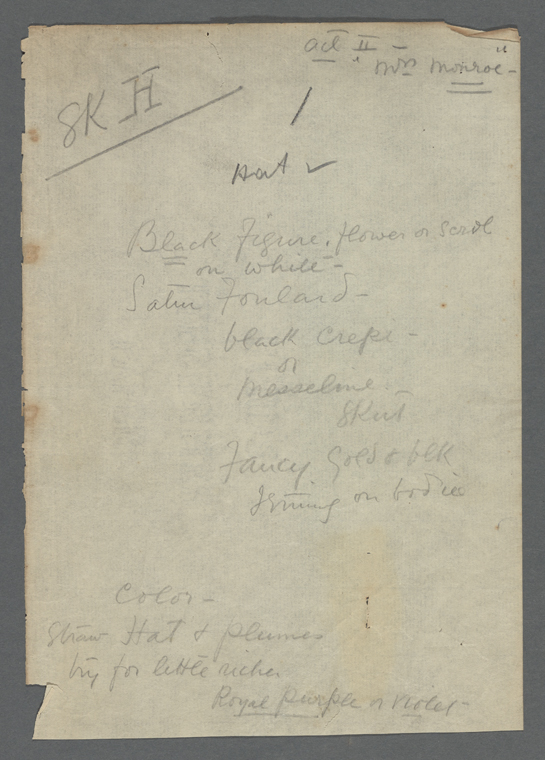 Act II -
Mrs Monroe -
SK II
1
Hat ✓
Black Figure, flower or Scroll
on white -
Satin Foulard -
black Crepe -
or
Messeline -
Skirt
Fancy Gold & blk
Trimmg on bodice
Color -
Straw Hat & plumes
try for little richer
Royal purple or violet -